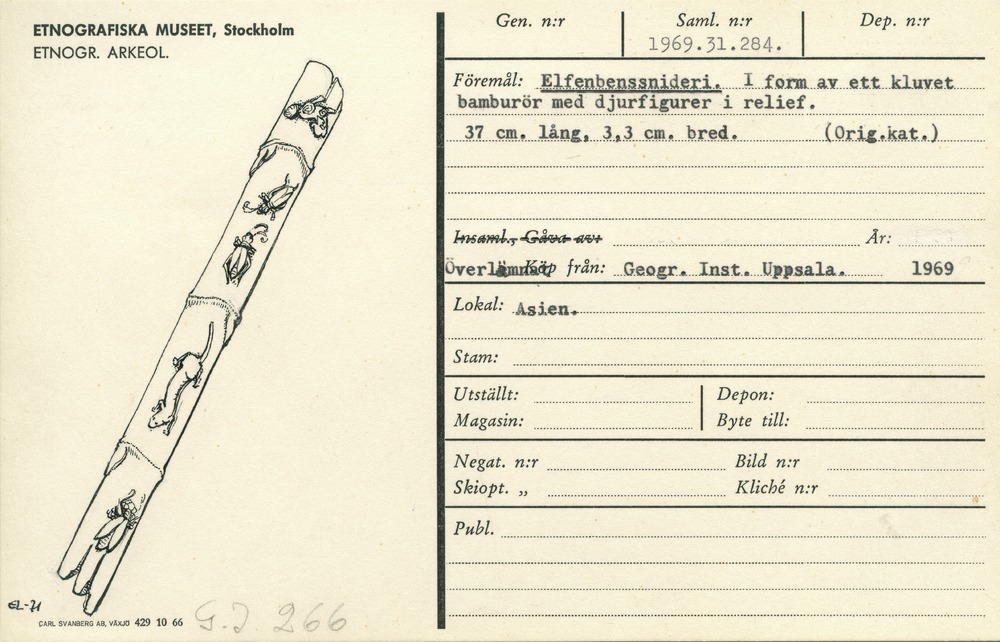 ETNOGRAFISKA MUSEET, Stockholm
ETNOGR. ARKEOL.
EL-71
CARL SVANBERG AB, VÄXJÖ 429 10 66
G.I. 266
Gen. n:r Saml. n:r Dep. n:r
1969.31.284.
Föremål: Elfenbenssnideri. I form av ett kluvet
bamburör med djurfigurer i relief.
37 cm. lång, 3,3 cm. bred. (Orig.kat.)
Insaml., Gåva av: År:
Överlämnat Köp från: Geogr. Inst. Uppsala. 1969
Lokal: Asien.
Stam:
Utställt: Depon:
Magasin: Byte till:
Negat. n:r Bild n:r
Skiopt. „ Kliché n:r
Publ.